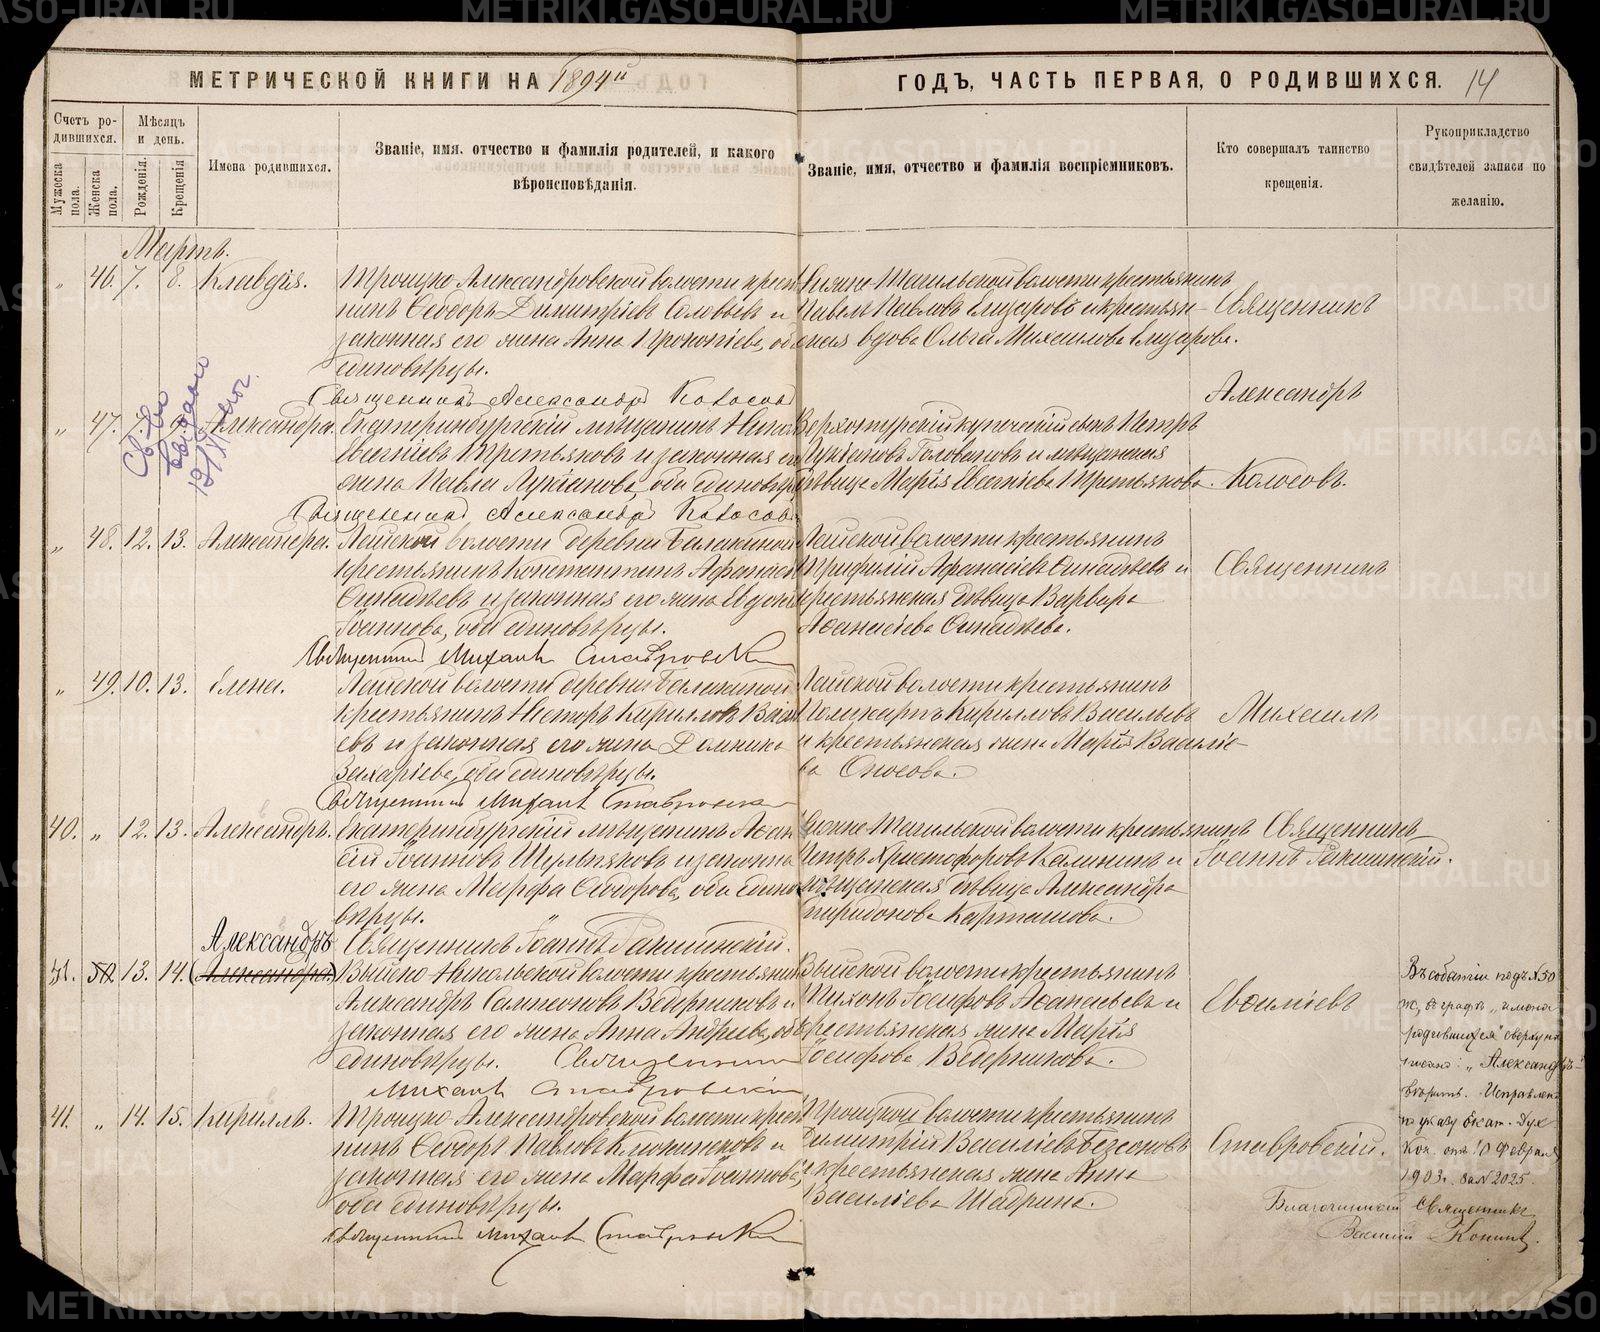 МЕТРИЧЕСКОЙ КНИГИ НА 1894й
ГОДЪ, ЧАСТЬ ПЕРВАЯ, О РОДИВШИХСЯ. 14
Счетъ родившихся.
Мужеска пола.
Женска пола.
Мѣсяцъ и день.
Рожденія.
Крещенія.
Имена родившихся.
Званіе, имя, отчество и фамилія родителей, и какого
вѣроисповѣданія.
Званіе, имя, отчество и фамилія воспріемниковъ.
Кто совершалъ таинство
крещенія.
Рукоприкладство
свидѣтелей записи по
желанію.
Мартъ.
„ 46. 7. 8. Клавдія.
Троицко Александровской волости крестья
нинъ Ѳеодоръ Димитріевъ Соловьевъ и
законная его жена Анна Прокопіева, оба
единовѣрцы.
Священникъ Александръ Колосовъ
Тагильской волости крестьянинъ
Павелъ Павловъ Елизаровъ и крестьян-
ская вдова Ольга Михаилова Елизарова.
Священникъ
Александръ
Колосовъ.
„ 47. 7. Александра.
Екатеринбургскій мѣщанинъ
Евгеніевъ Третьяковъ и законная его
жена Павла Лукіанова, оба единовѣрцы
Священникъ Александръ Колосовъ
Верхотурскій купеческій сынъ Петръ
Лукіановъ Головановъ и мѣщанская
дѣвица Марія Евгеніева Третьякова.
„ 48. 12. 13. Александра.
Лайской волости деревни Балакиной
крестьянинъ Константинъ Аѳанасіевъ
и законная его жена Евдокія
Іоаннова, оба единовѣрцы.
Священникъ Михаилъ Ставровскій
Лайской волости крестьянинъ
Трифилій Аѳанасіевъ и
крестьянская дѣвица Варвара
Аѳанасіева
Священникъ
Михаилъ
„ 49. 10. 13. Елена.
Лайской волости деревни Балакиной
крестьянинъ Несторъ Кирилловъ Василь
евъ и законная его жена Домника
Захаріева, оба единовѣрцы.
Священникъ Михаилъ Ставровскій
Лайской волости крестьянинъ
Поликарпъ Кирилловъ Васильевъ
и крестьянская жена Марія Василіе-
ва
40. „ 12. 13. Александръ.
Екатеринбургскій мѣщанинъ Аѳана
сій Іоанновъ Шульпяковъ и законная
его жена Марфа Ѳеодорова, оба едино
вѣрцы.
Священникъ Іоаннъ Ракшинскій.
Тагильской волости крестьянинъ
Петръ Христофоровъ Калининъ и
мѣщанская дѣвица Александра
Спиридонова Карташова.
Священникъ
Іоаннъ Ракшинскій.
Александръ
41. 50. 13. 14. (Александра)
Выйско Никольской волости крестьянинъ
Александръ Сампсоновъ Ведерниковъ и
законная его жена Анна Андреева, оба
единовѣрцы. Священникъ
Михаилъ Ставровскій
Выйской волости крестьянинъ
Тихонъ Іосифовъ Аѳанасьевъ и
крестьянская жена Марія
Іосифова Ведерникова.
Въ событіи подъ №50
ж. въ графѣ „имена
родившихся" сверху на
писано: „Александръ"
вѣрить. Исправлено
по указу Екат. Дух.
Кон. отъ 10 Февраля
1903 г. за №2025.
Благочинный Священникъ
Василій
41. „ 14. 15. Кириллъ.
Троицко Александровской волости крестья
нинъ Ѳеодоръ Павловъ Клюжинсковъ и
законная его жена Марфа Іоаннова,
оба единовѣрцы.
Священникъ Михаилъ Ставровскій
Троицкой волости крестьянинъ
Димитрій Василіевъ Безсоновъ
и крестьянская жена Анна
Василіева Шадрина.
Ставровскій.
METRIKI.GASO-URAL.RU